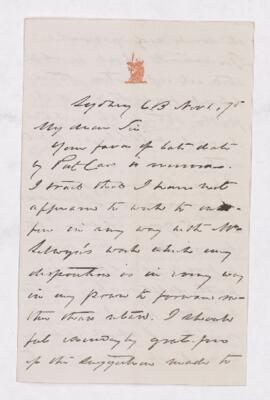 Sydney CB Nov 1, 78
My dear Sir
Your favor of late date
by Post Card is
I trust that I have not
appeared to wish to
in any way with Mr
Selwyn's work which my
disposition is in every way
in my power to forward
than I should
feel exceedingly
if the suggestion made to